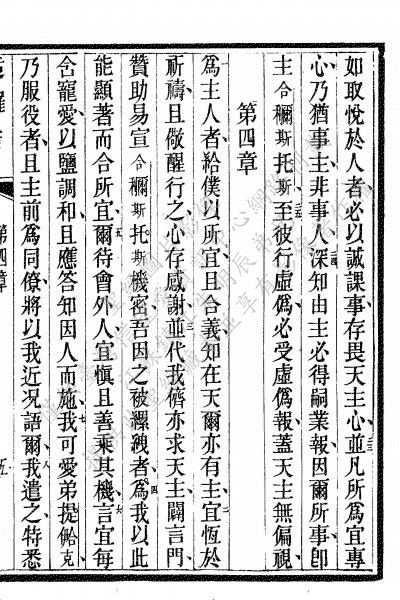 如取悅於人者必以誠課事存畏天主心並凡所爲宜專
心乃猶事主非事人深知由主必得嗣業報因爾所事卽
主合穪斯托斯至彼行虛僞必受虛僞報蓋天主無偏視
第四章
爲主人者給僕以所宜且合義知在天爾亦有主宜恆於
祈禱且儆醒行之心存感謝並代我儕亦求天主闢言門
贊助易宣合穪斯托斯機密吾因之被縲絏者爲我以此
能顯著而合所宜爾待會外人宜愼且善乘其機言宜每
含寵愛以鹽調和且應答知因人而施我可愛弟提餄克
乃服役者且主前爲同僚將以我近况語爾我遣之特悉
第四章
五